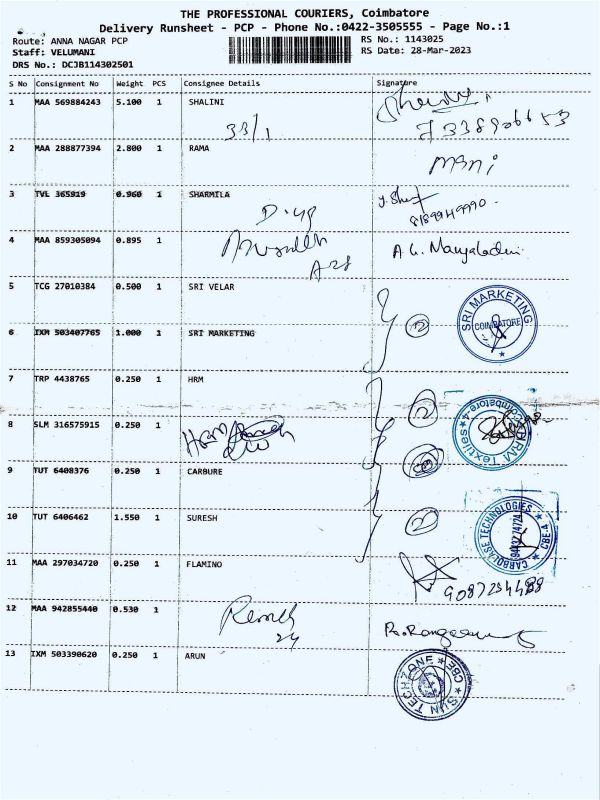 THE PROFESSIONAL COURIERS, Coimbatore
Delivery Runsheet - PCP - Phone No.:0422-3505555 - Page No.:1
Route: ANNA NAGAR PCP RS No.: 1143025
Staff: VELUMANI RS Date: 28-Mar-2023
DRS No.: DCJB114302501
S No Consignment No Weight PCS Consignee Details Signature
1 MAA 569884243 5.100 1 SHALINI
33/1
2 MAA 288877394 2.800 1 RAMA
mani
3 TVL 365919 0.960 1 SHARMILA
D-48
4 MAA 859305094 0.895 1
A-28
5 TCG 27010384 0.500 1 SRI VELAR
SRI MARKETING
COIMBATORE
2
6 IXM 503407765 1.000 1 SRI MARKETING
7 TRP 4438765 0.250 1 HRM
2
8 SLM 316575915 0.250 1
HRM Textiles
Coimbatore-4
9 TUT 6408376 0.250 1 CARBURE
10 TUT 6406462 1.550 1 SURESH
2
CARBOLASE TECHNOLOGIES
CBE-4
11 MAA 297034720 0.250 1 FLAMINO
9087234488
12 MAA 942855440 0.530 1
Ramesh
24
13 IXM 503390620 0.250 1 ARUN
SUN TECHZONE
CBE